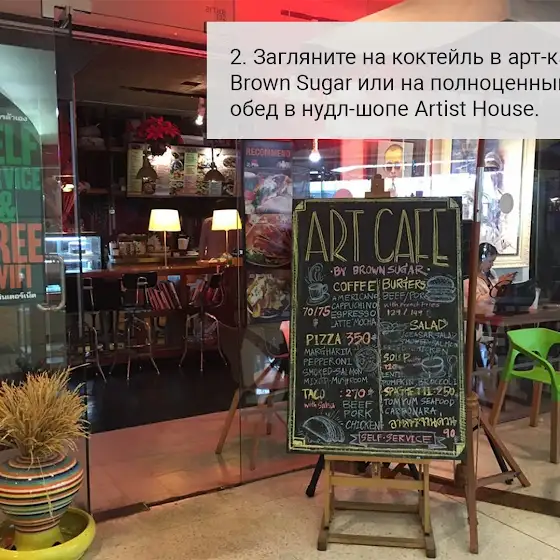 2. Загляните на коктейль в арт-к
Brown Sugar или на полноценный
обед в нудл-шопе Artist House.
RECOMMEND
SELF
SERVICE
&
FREE
WIFI
ART CAFE
BY BROWN SUGAR
COFFEE
AMERICANO
CAPPUCHINO
70/75
ESPRESSO
LATTE/MOCHA
PIZZA 350
MARGHARITA
PEPPERONI
SMOKED-SALMON
MIXED-MUSHROOM
TACO 270
with Salsa
BEEF
PORK
CHICKEN
BURGERS
BEEF/PORK
with French Fries
129/149
SALAD
CEASAR-SALAD
SMOKED-SALMON
SOUP
120
PUMPKIN BROCCOLI
SPAGHETTI 250
TOMYUM SEAFOOD
CARBONARA
90
SELF-SERVICE